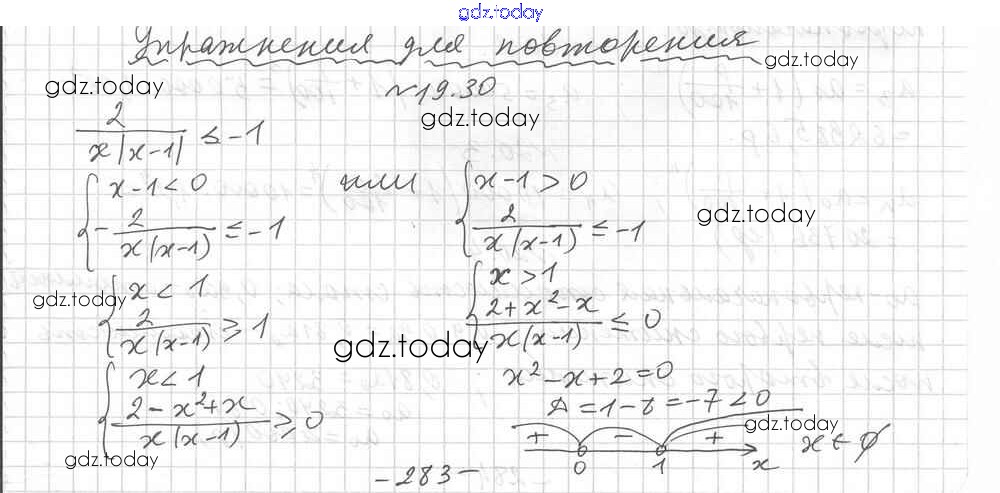 gdz.today
Упражнения для повторения
gdz.today
№19.30
gdz.today
gdz.today
2/(x|x-1|) ≤ -1
{ x-1<0 или { x-1>0
-2/(x(x-1)) ≤ -1 2/(x(x-1)) ≤ -1
gdz.today
{ x<1 { x>1
gdz.today
2/(x(x-1)) ≥ 1 (2+x²-x)/(x(x-1)) ≤ 0
gdz.today
{ x<1 x²-x+2=0
(2-x²+x)/(x(x-1)) ≥ 0 D=1-8=-7<0
gdz.today
+ - + x∈∅
0 1 x
gdz.today
-283-